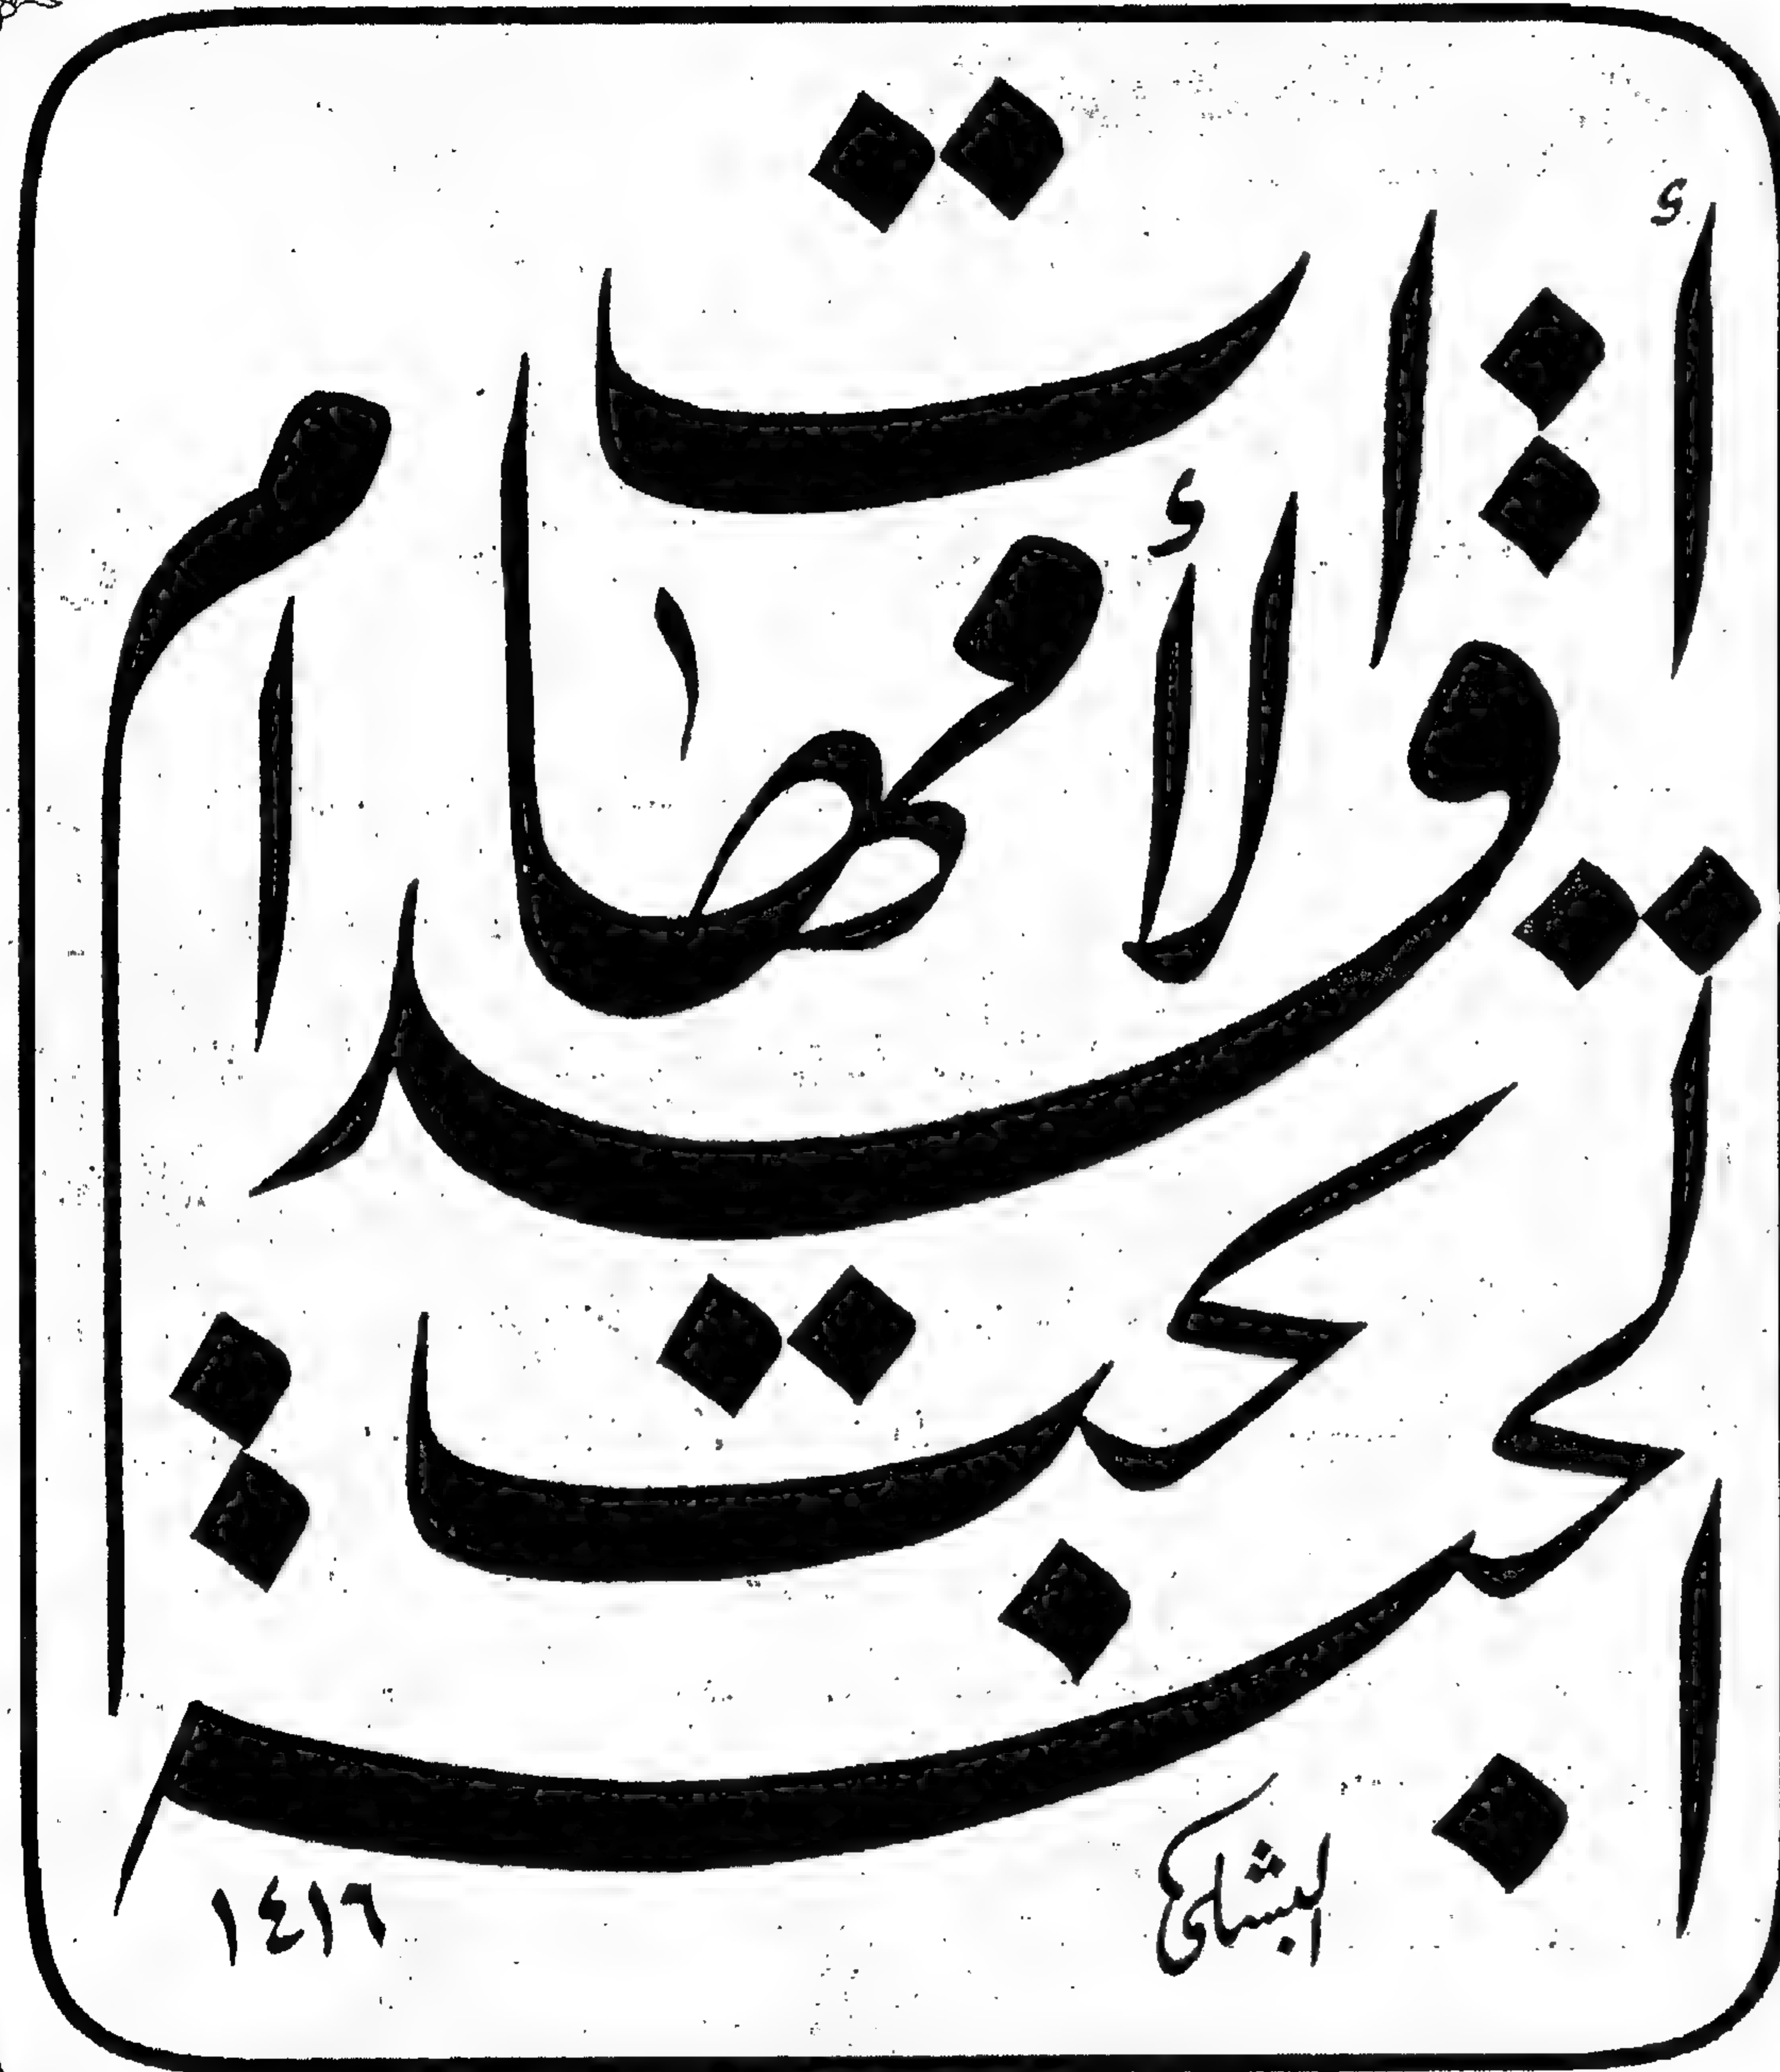 الجنة تحت أقدام الأمهات
١٤١٦